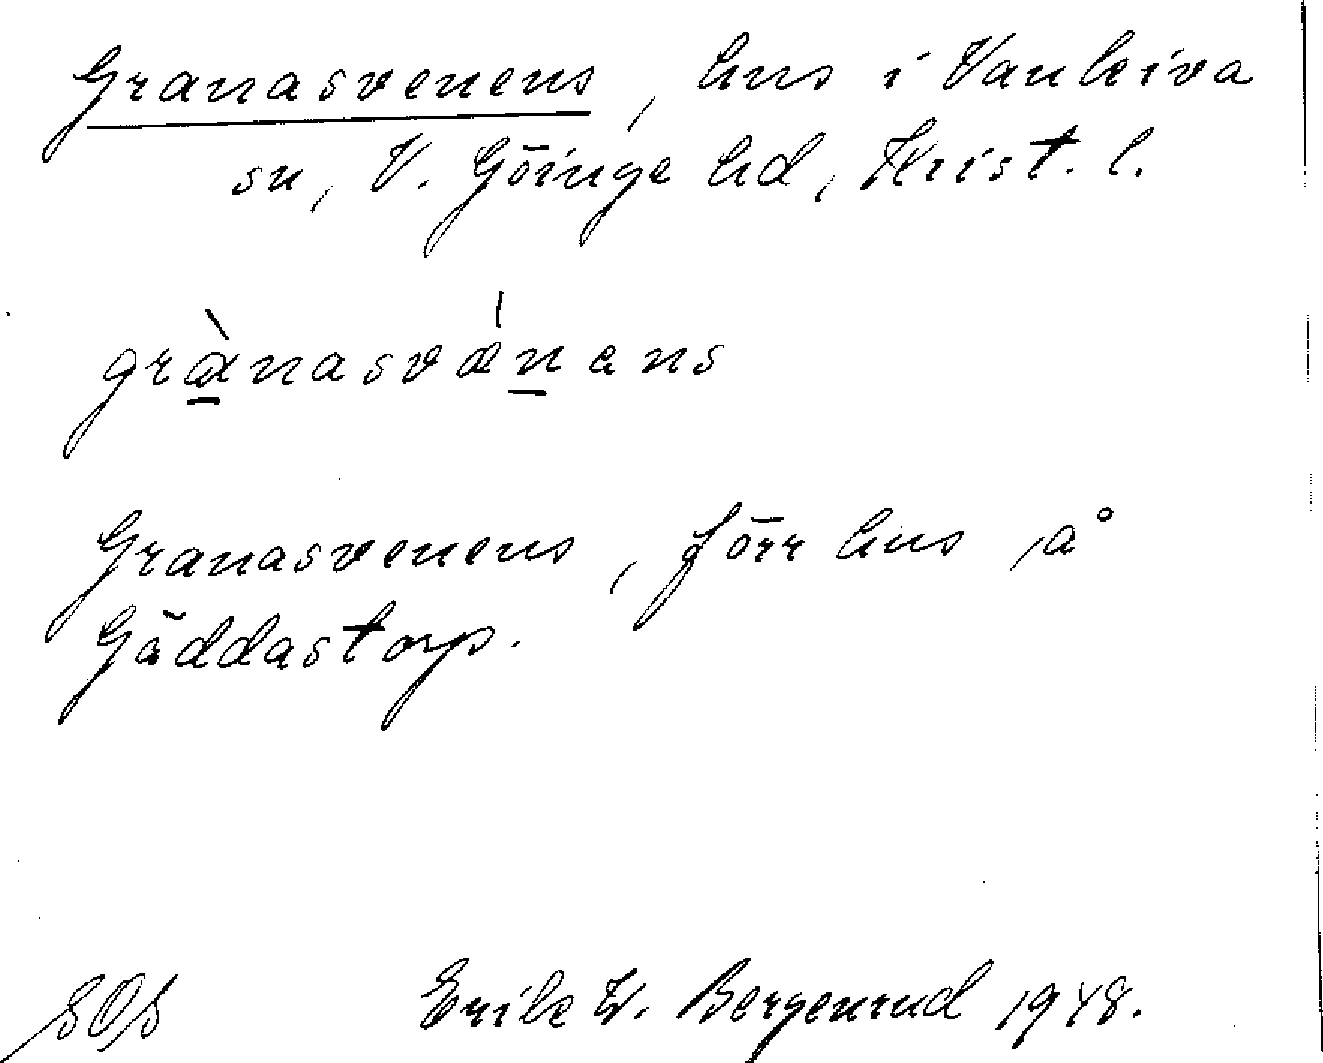 Granasvenens, hus i Vankiva
sn, V. Göinge hd, Krist. l.
grànasvænens
Granasvenens, förr hus på
Gäddastorp.
SOS Erik W. Bergenrud 1948.